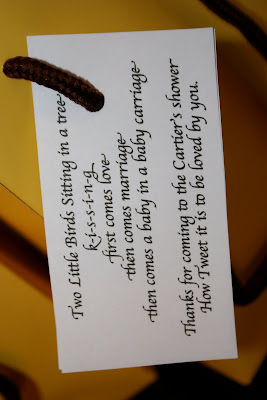 Two Little Birds Sitting in a tree
k-i-s-s-i-n-g
first comes love
then comes marriage
then comes a baby in a baby carriage
Thanks for coming to the Cartier's shower
How Tweet it is to be loved by you.